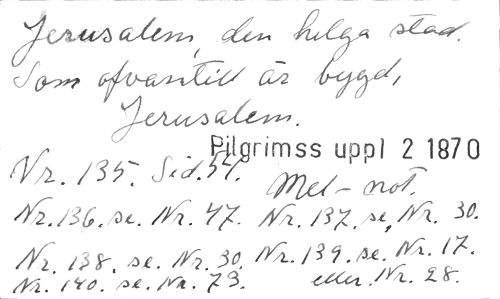 Jerusalem, den helga stad.
Som ofvantill är bygd,
Jerusalem.
Pilgrimss uppl 2 1870
Nr. 135. Sid. 57.
Mel-not.
Nr. 136. se. Nr. 47. Nr. 137. se, Nr. 30.
Nr. 138. se. Nr. 30. Nr. 139. se. Nr. 17.
Nr. 140. se. Nr. 73. eller. Nr. 28.